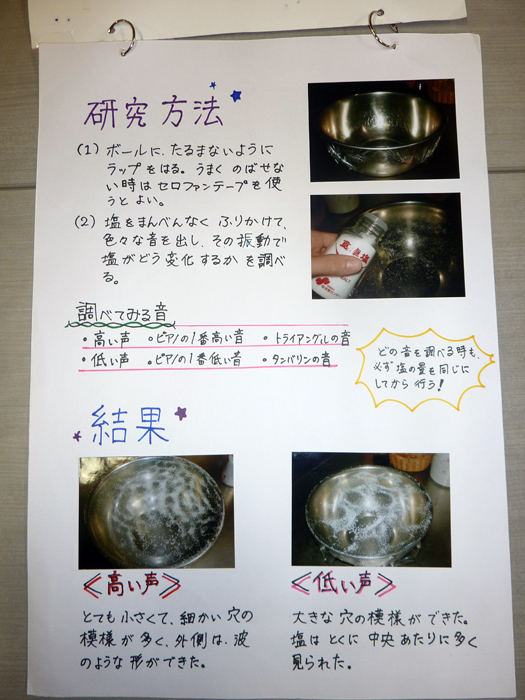 研究方法
(1) ボールに、たるまないように
ラップをはる。うまくのばせな
い時はセロファンテープを使
うとよい。
(2) 塩をまんべんなくふりかけて、
色々な音を出し、その振動で
塩がどう変化するかを調べ
る。
調べてみる音
・高い声 ・ピアノの1番高い音 ・トライアングルの音
・低い声 ・ピアノの1番低い音 ・タンバリンの音
どの音を調べる時も、
必ず塩の量を同じに
してから行う!
結果
<高い声>
とても小さくて、細かい穴の
模様が多く、外側は、波
のような形ができた。
<低い声>
大きな穴の模様ができた。
塩はとくに中央あたりに多く
見られた。